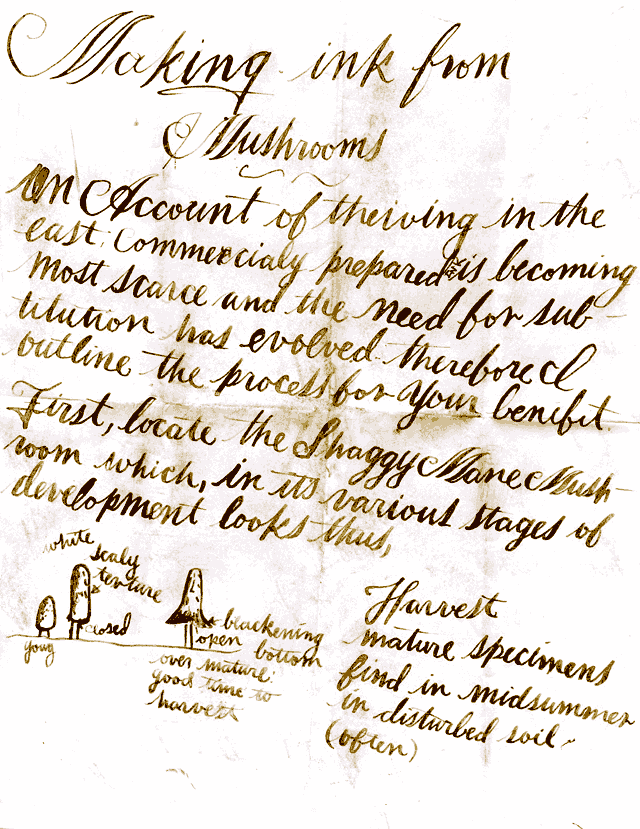 Making ink from
Mushrooms
On Account of thriving in the
east, Commercialy prepared ink is becoming
most scarce and the need for sub-
titution has evolved. therefore I
outline the process for your benifit.
First, locate the Shaggy Mane Mush-
room which, in its various stages of
development looks thus,
white
scaly
texture
closed
yowg
blackening
bottom
open
over mature:
good time to
harvest
Harvest
mature specimens
find in midsummer
in disturbed soil.
(often)